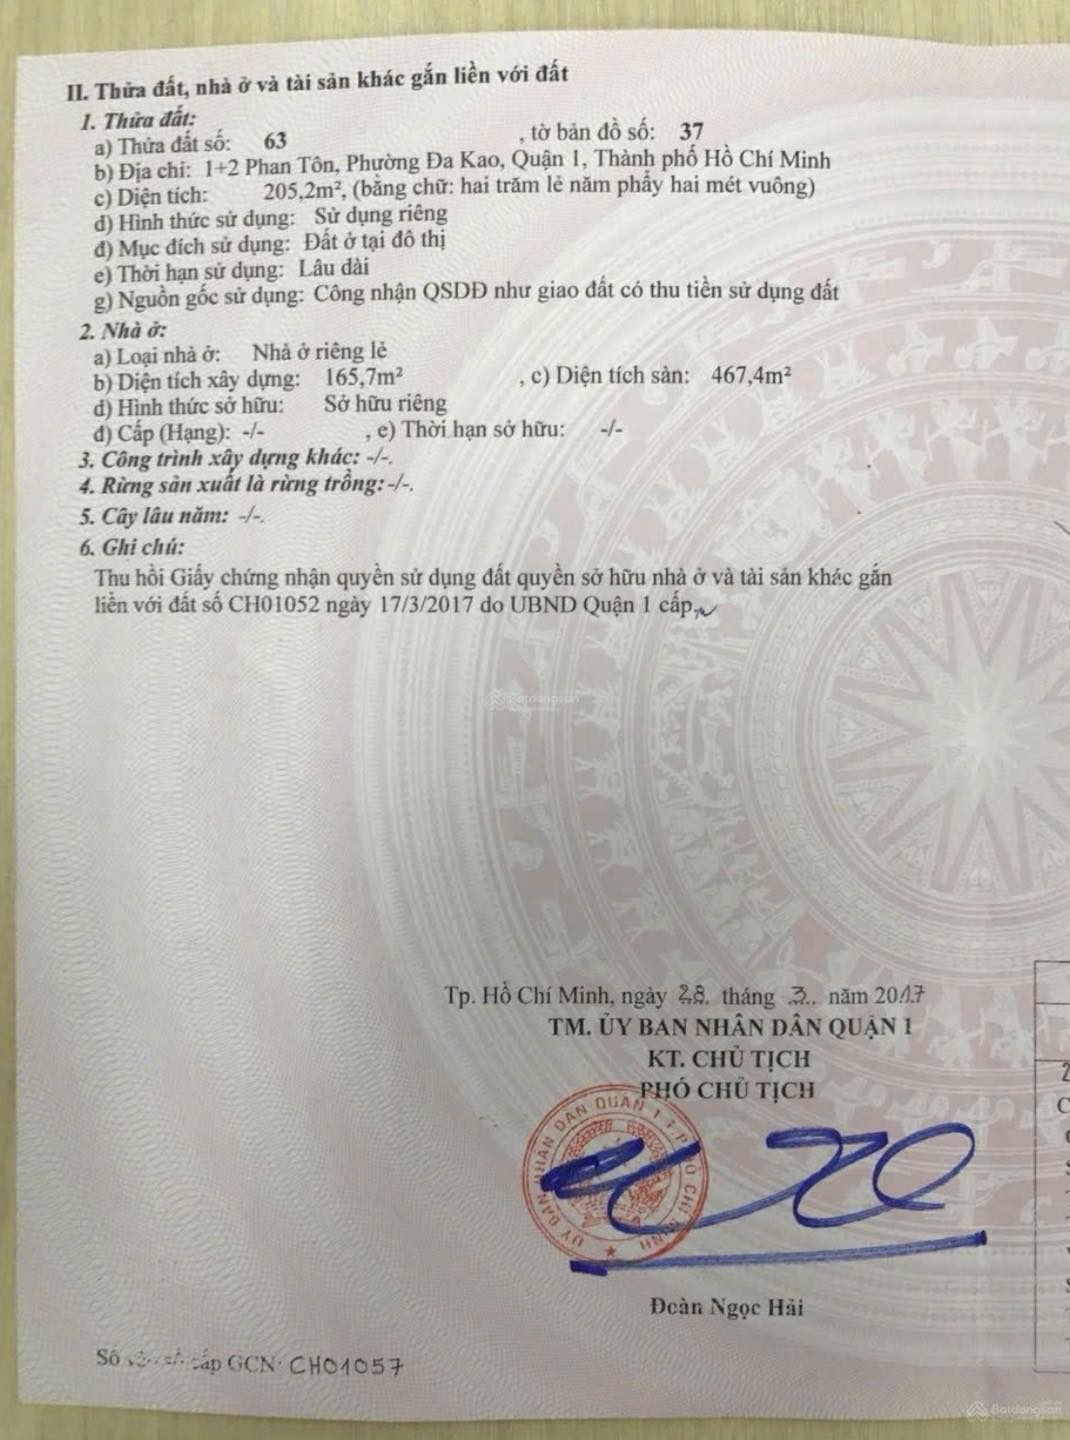 II. Thửa đất, nhà ở và tài sản khác gắn liền với đất
1. Thửa đất:
a) Thửa đất số: 63 , tờ bản đồ số: 37
b) Địa chỉ: 1+2 Phan Tôn, Phường Đa Kao, Quận 1, Thành phố Hồ Chí Minh
c) Diện tích: 205,2m², (bằng chữ: hai trăm lẻ năm phẩy hai mét vuông)
d) Hình thức sử dụng: Sử dụng riêng
đ) Mục đích sử dụng: Đất ở tại đô thị
e) Thời hạn sử dụng: Lâu dài
g) Nguồn gốc sử dụng: Công nhận QSDĐ như giao đất có thu tiền sử dụng đất
2. Nhà ở:
a) Loại nhà ở: Nhà ở riêng lẻ
b) Diện tích xây dựng: 165,7m² , c) Diện tích sàn: 467,4m²
d) Hình thức sở hữu: Sở hữu riêng
đ) Cấp (Hạng): -/- , e) Thời hạn sở hữu: -/-
3. Công trình xây dựng khác: -/-.
4. Rừng sản xuất là rừng trồng: -/-.
5. Cây lâu năm: -/-.
6. Ghi chú:
Thu hồi Giấy chứng nhận quyền sử dụng đất quyền sở hữu nhà ở và tài sản khác gắn
liền với đất số CH01052 ngày 17/3/2017 do UBND Quận 1 cấp
Batdongsan
Tp. Hồ Chí Minh, ngày 28. tháng 3.. năm 2017
TM. ỦY BAN NHÂN DÂN QUẬN 1
KT. CHỦ TỊCH
PHÓ CHỦ TỊCH
ỦY BAN NHÂN DÂN QUẬN 1 T.P HỒ CHÍ MINH
Đoàn Ngọc Hải
Số cấp GCN: CH01057
Batdongsan